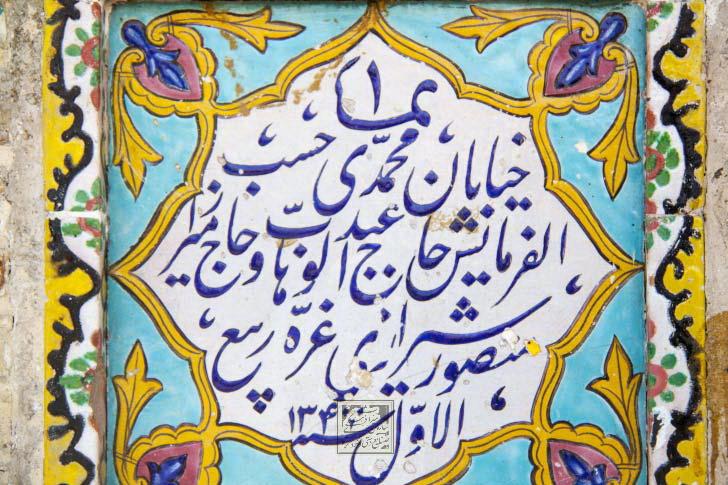 ۱
خیابان محمدی حسب
الفرمایش حاج عبدالوهاب و حاج میرزا
منصور شیرازی غرّه ربیع
الاوّل سنه